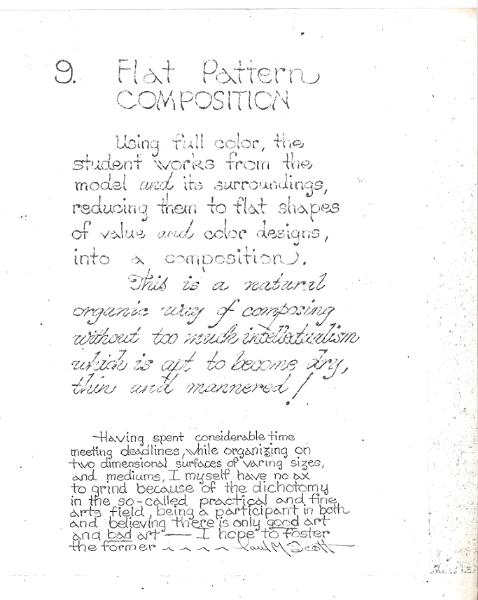 9. Flat Pattern
COMPOSITION
Using full color, the
student works from the
model and its surroundings,
reducing them to flat shapes
of value and color designs,
into a composition.
This is a natural
organic way of composing
without too much intellectualism
which is apt to become dry,
thin and mannered!
-Having spent considerable time
meeting deadlines, while organizing on
two dimensional surfaces of varing sizes,
and mediums, I myself have no ax
to grind because of the dichotomy
in the so-called practical and fine
arts field, being a participant in both
and believing there is only good art
and bad art — I hope to foster
the former ~ ~ ~ ~ Paul M Scott